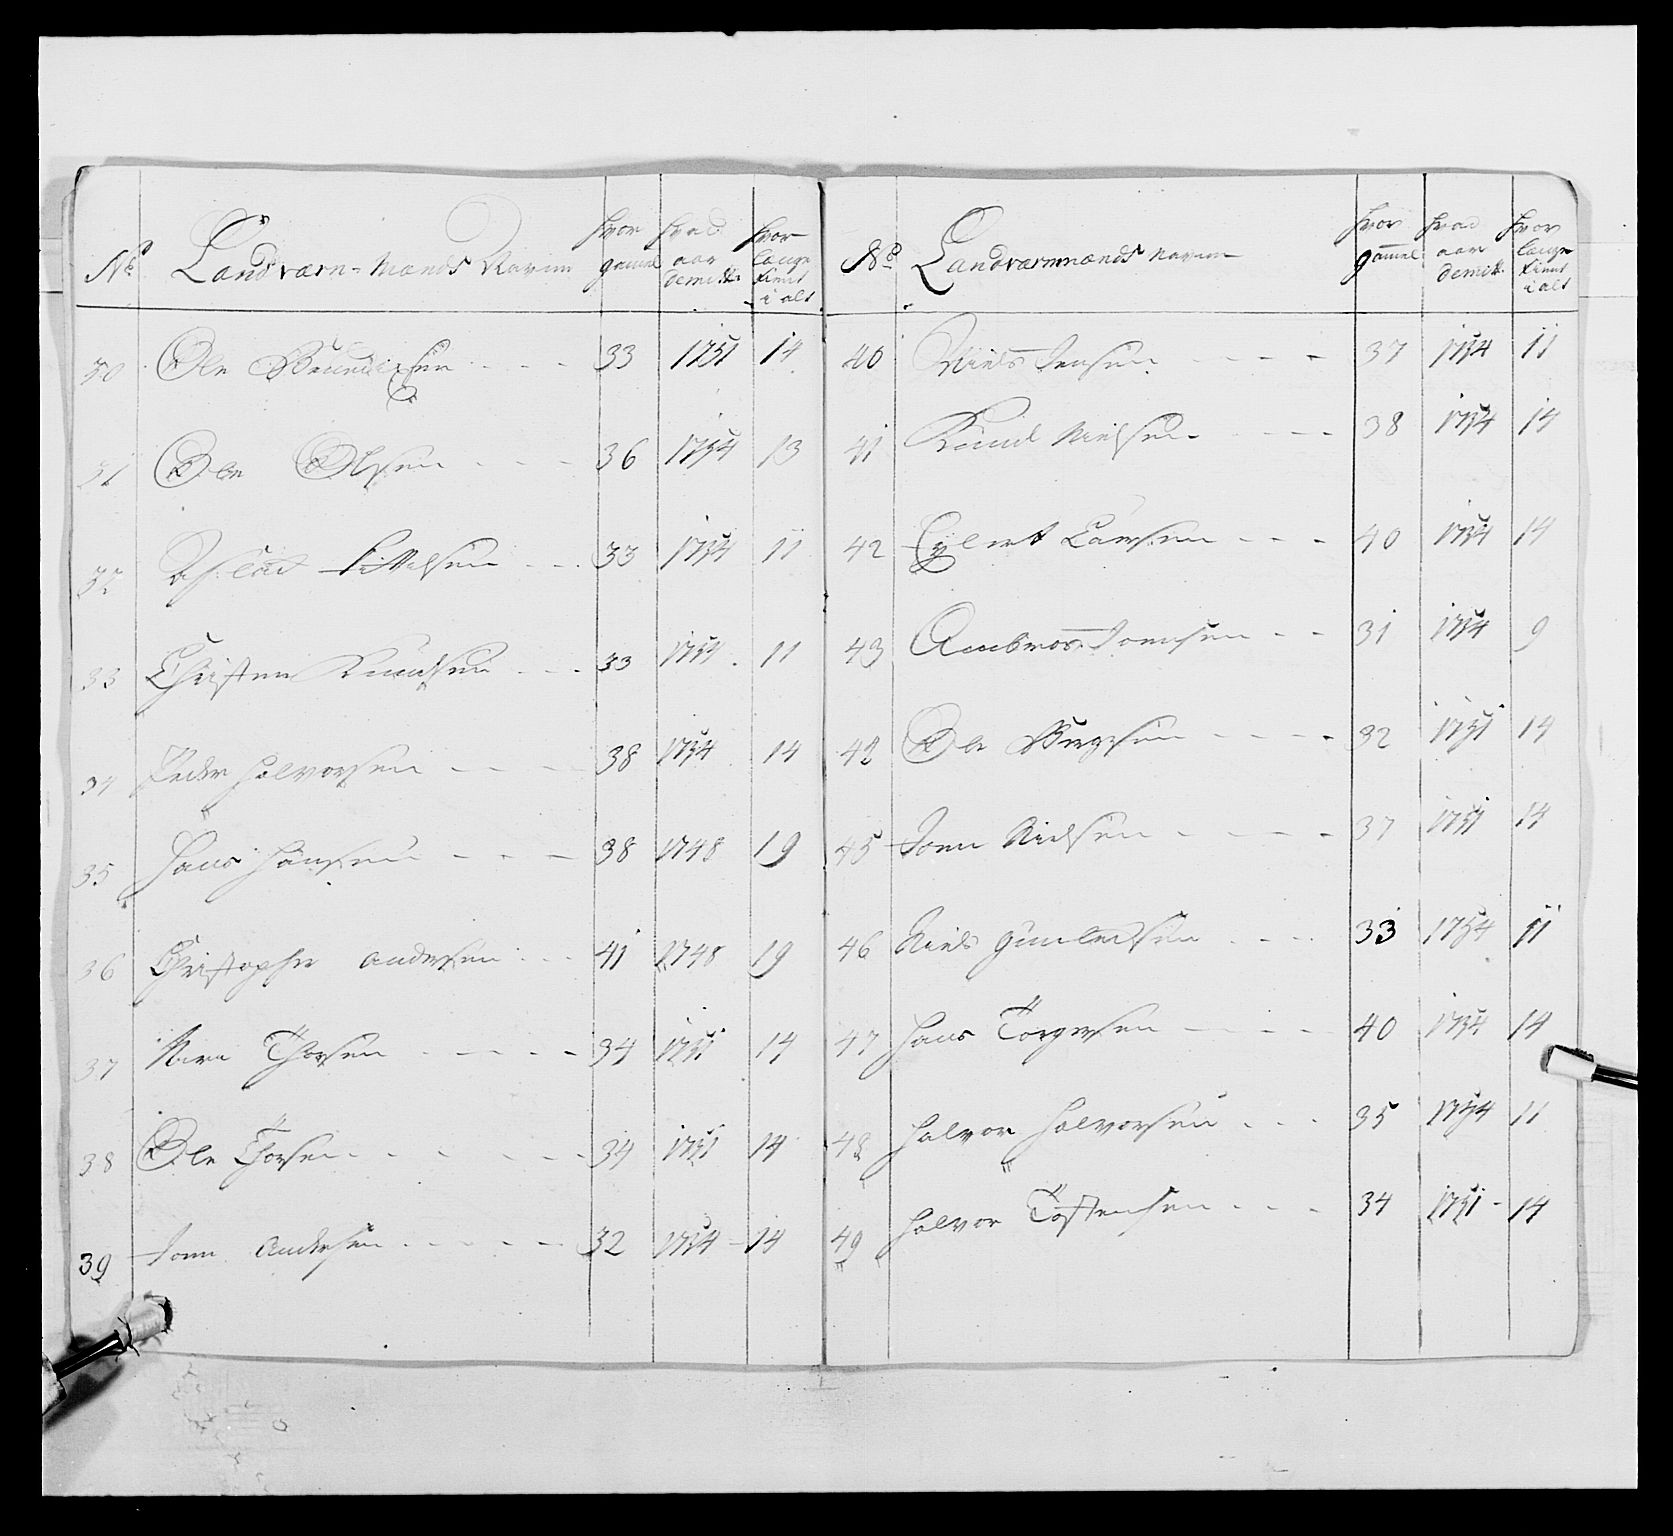 No Landværn-Mænds Navne hvor gamel hvad aar demitt: hvor længe tient i alt
30 Ole Bendixsen 33 1751 14
31 Ole Olsen 36 1754 13
32 Aslac Kittelsen 33 1754 11
33 Christen Knudsen 33 1754 11
34 Peder Halvorsen 38 1754 14
35 Hans Hansen 38 1748 19
36 Christopher Andersen 41 1748 19
37 Thorsen 34 1751 14
38 Ole Thorsen 34 1751 14
39 Joen Andersen 32 1754 14
No Landværnmænds Navne hvor gamel hvad aar demitt: hvor længe tient i alt
40 Niels Jensen 37 1754 11
41 Knud Nielsen 38 1754 14
42 Eylert Larsen 40 1754 14
43 Ambros Joensen 31 1754 9
42 Ole 32 1751 14
45 Joen Nielsen 37 1751 14
46 Niels Gunledsen 33 1754 11
47 Hans Torgersen 40 1754 14
48 Halvor Halvorsen 35 1754 11
49 Halvor Tostensen 34 1751 14